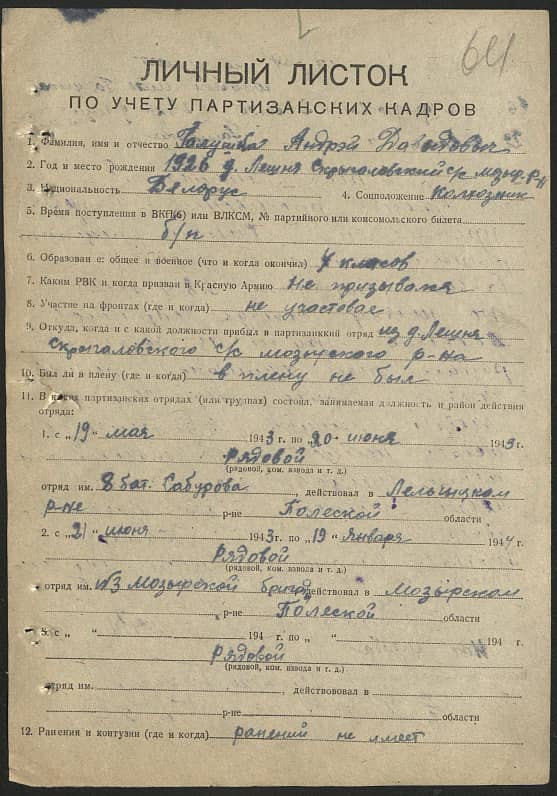 641
ЛИЧНЫЙ ЛИСТОК
ПО УЧЕТУ ПАРТИЗАНСКИХ КАДРОВ
1. Фамилия, имя и отчество Галушка Андрэй Давыдович
2. Год и место рождения 1926 д. Лешня Скрыгаловский с/с мозыр. р-н
3. Национальность Белорус 4. Соцположение Колхозник
5. Время поступления в ВКП(б) или ВЛКСМ, № партийного или комсомольского билета
б/п
6. Образование: общее и военное (что и когда окончил) 4 класов
7. Каким РВК и когда призван в Красную Армию Не призывался
8. Участие на фронтах (где и когда) не участовае
9. Откуда, когда и с какой должности прибыл в партизанский отряд из д. Лешня
Скрыгалевского с/с мозырского р-на
10. Был ли в плену (где и когда) в плену не был
11. В каких партизанских отрядах (или группах) состоял, занимаемая должность и район действия
отряда:
1. с „19“ мая 1943 г. по „20“ июня 1943 г.
Рядовой
(рядовой, ком. взвода и т. д.)
отряд им. 8 бат. Сабурова, действовал в Лельчицком
р-не р-не Полеской области
2. с „21“ июня 1943 г. по „19“ Января 1944 г.
Рядовой
(рядовой, ком. взвода и т. д.)
отряд им. №3 Мозырской бригад действовал в Мозырском
р-не Полеской области
3. с „ “ 194 г. по „ “ 194 г.
Рядовой
(рядовой, ком. взвода и т. д.)
отряд им. , действововал в
р-не области
12. Ранения и контузии (где и когда) ранений не имеет